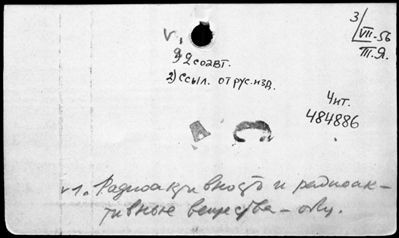 3/VII-56
П.Я.
v,
2 соавт.
2) ссыл. от рус. изд.
Чит.
484886
А С
v1. Радиоактивность и радиоак-
тивные вещества - общ.